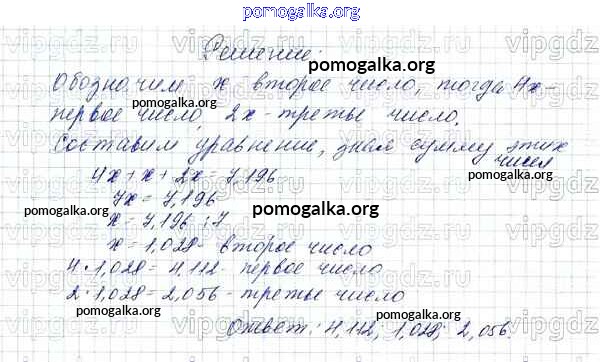 pomogalka.org
Решение:
pomogalka.org
Обозначим x второе число, тогда 4x –
pomogalka.org
первое число, 2x - третье число.
pomogalka.org
Составим уравнение, зная сумму этих
числа
pomogalka.org
4x + x + 2x = 7,196
7x = 7,196
pomogalka.org
pomogalka.org
pomogalka.org
x = 7,196 : 7
x = 1,028 - второе число
4 · 1,028 = 4,112 - первое число
pomogalka.org
2 · 1,028 = 2,056 - третье число
pomogalka.org
pomogalka.org
Ответ: 4,112; 1,028; 2,056.
vipgdz.ru